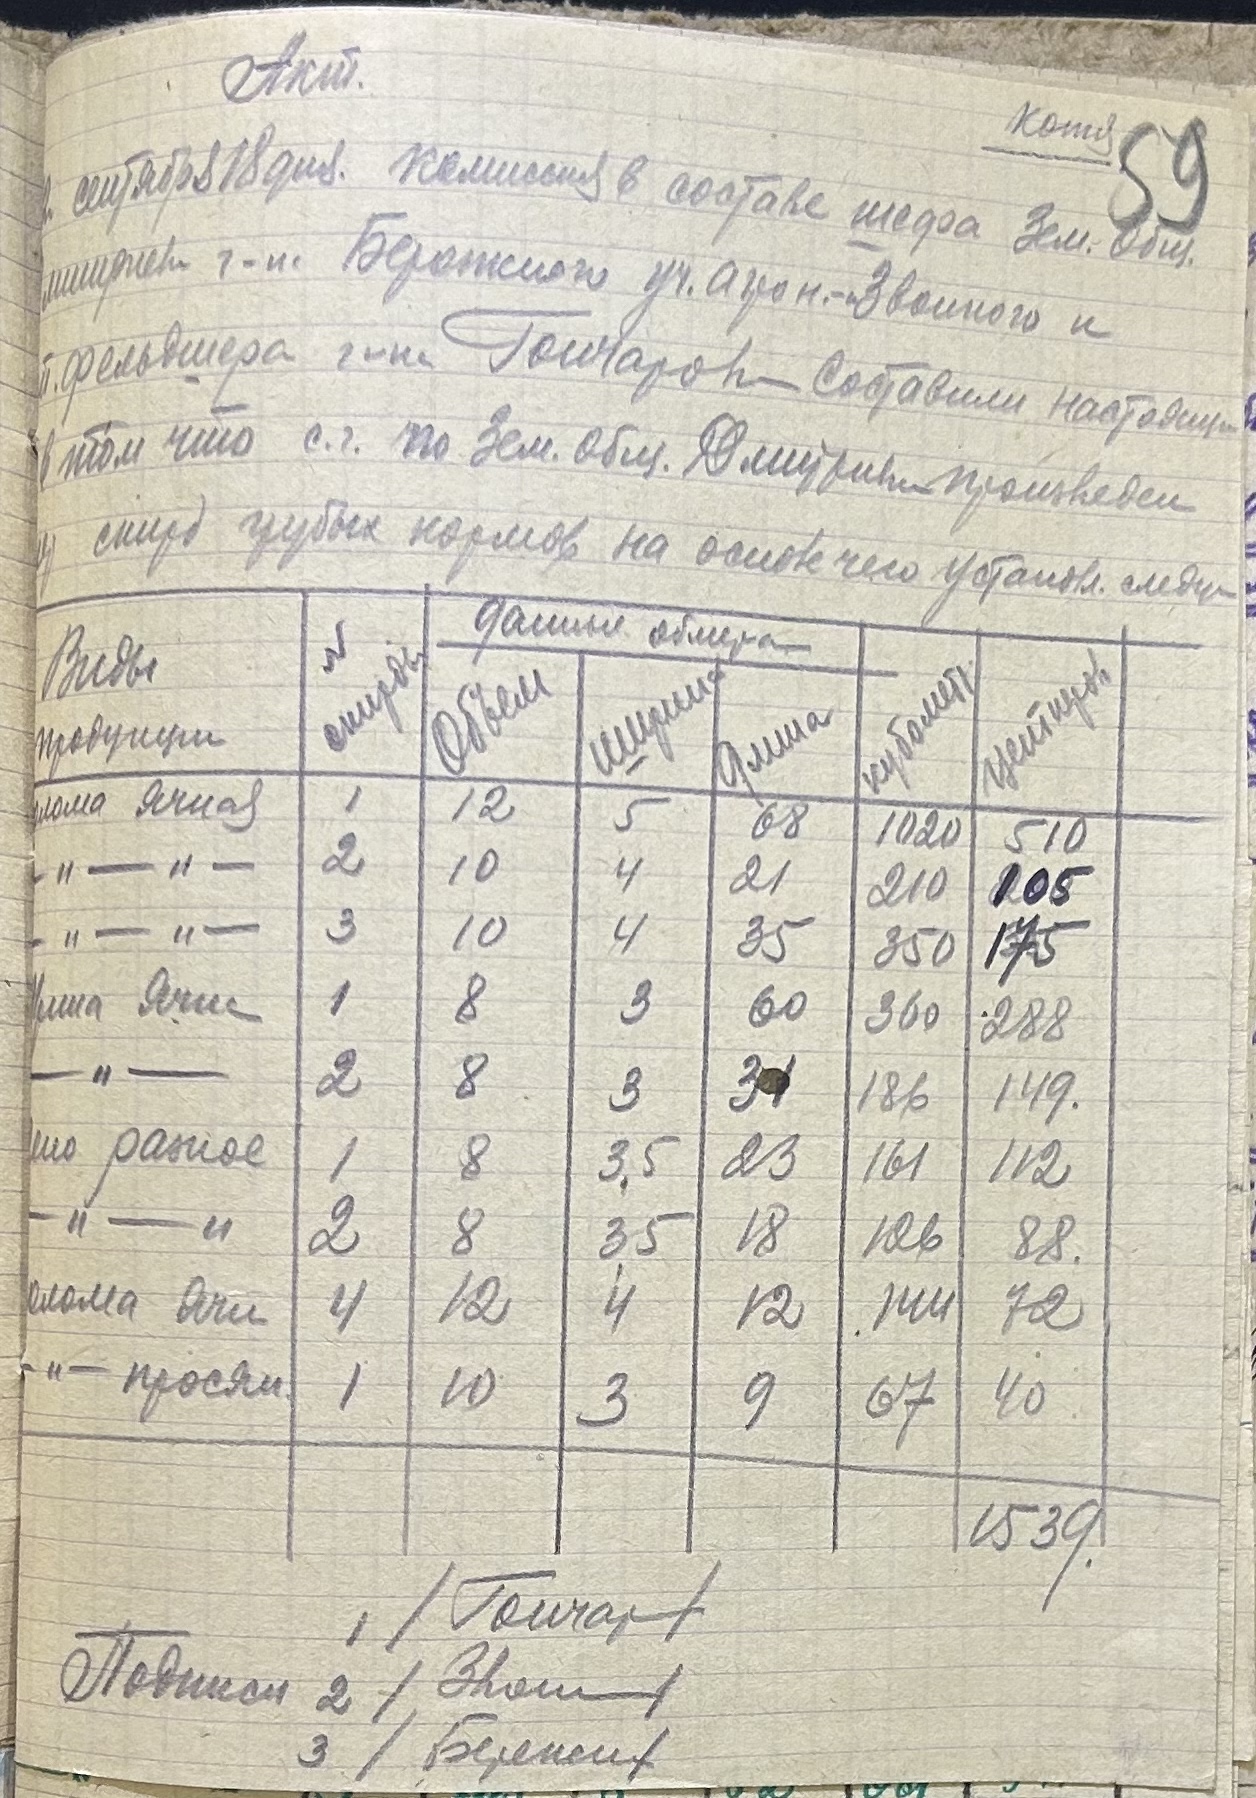 Акт.
Копия
59
сентября 18 дня. Комиссия в составе шефа Зем. Общ.
г-на Бережного уч. агрон. Звонного и
фельдшера г-на Гончаров составили настоящий
в том что с.г. по Зем. Общ. произведен
скирд грубых кормов на основ. чего установл. следую
Виды продукции | № скирды | Данные обмера | кубомет. | центнеров
Объем | Ширина | Длина
олома Ячная 1 12 5 68 1020 510
-"—"- 2 10 4 21 210 105
-"—"- 3 10 4 35 350 175
Ячн 1 8 3 60 360 288
—"— 2 8 3 31 186 149.
ено разное 1 8 3,5 23 161 112
-"—" 2 8 35 18 126 88.
олома Ячн 4 12 4 12 144 72
-"- просян. 1 10 3 9 67 40
1539.
1 / Гончар /
Подписи 2 / Звон /
3 / Бережн /